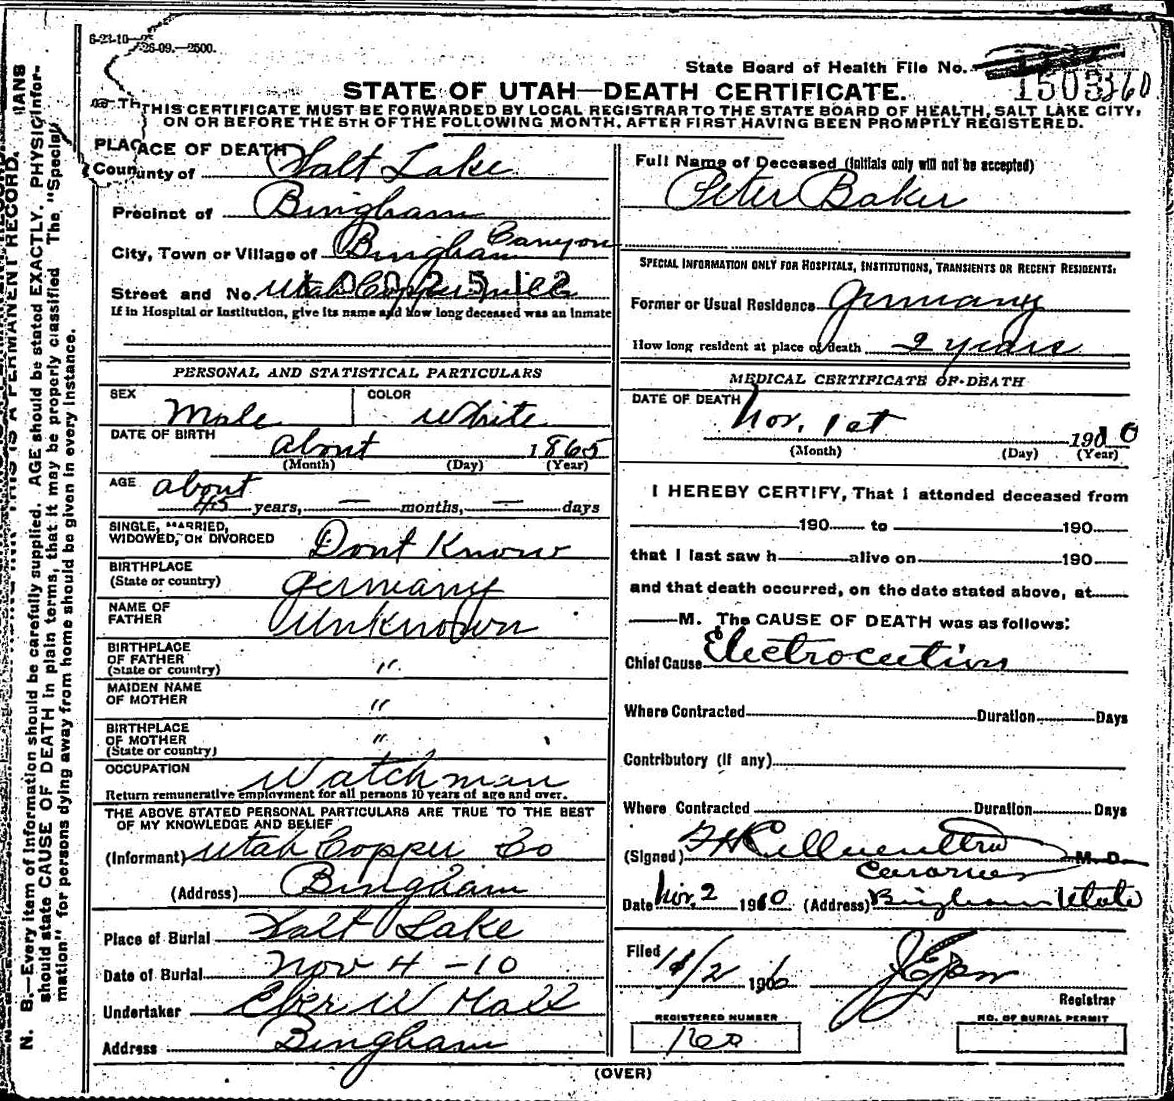 6-23-10
26-09.—2500.
State Board of Health File No.
1503360
STATE OF UTAH—DEATH CERTIFICATE.
THIS CERTIFICATE MUST BE FORWARDED BY LOCAL REGISTRAR TO THE STATE BOARD OF HEALTH, SALT LAKE CITY,
ON OR BEFORE THE 5TH OF THE FOLLOWING MONTH, AFTER FIRST HAVING BEEN PROMPTLY REGISTERED.
PLACE OF DEATH
County of Salt Lake
Precinct of Bingham
City, Town or Village of Bingham Canyon
Street and No. Utah Copper Mill
1002512
If in Hospital or Institution, give its name and how long deceased was an inmate
PERSONAL AND STATISTICAL PARTICULARS
SEX Male COLOR White
DATE OF BIRTH about 1865
(Month) (Day) (Year)
AGE about
45 years, — months, — days
SINGLE, MARRIED,
WIDOWED, OR DIVORCED Dont Know
BIRTHPLACE
(State or country) Germany
NAME OF
FATHER Unknown
BIRTHPLACE
OF FATHER
(State or country) "
MAIDEN NAME
OF MOTHER "
BIRTHPLACE
OF MOTHER
(State or country) "
OCCUPATION Watchman
Return remunerative employment for all persons 10 years of age and over.
THE ABOVE STATED PERSONAL PARTICULARS ARE TRUE TO THE BEST
OF MY KNOWLEDGE AND BELIEF
(Informant) Utah Copper Co
(Address) Bingham
Place of Burial Salt Lake
Date of Burial Nov 4 - 10
Undertaker Eber W Hall
Address Bingham
Full Name of Deceased (Initials only will not be accepted)
Peter Baker
SPECIAL INFORMATION ONLY FOR HOSPITALS, INSTITUTIONS, TRANSIENTS OR RECENT RESIDENTS:
Former or Usual Residence Germany
How long resident at place of death 2 years
MEDICAL CERTIFICATE OF DEATH
DATE OF DEATH
Nov. 1st 1910
(Month) (Day) (Year)
I HEREBY CERTIFY, That I attended deceased from
190 to 190
that I last saw h alive on 190
and that death occurred, on the date stated above, at
M. The CAUSE OF DEATH was as follows:
Chief Cause Electrocution
Where Contracted Duration Days
Contributory (if any)
Where Contracted Duration Days
(Signed) M. D.
Coroner
Date Nov. 2 1910 (Address) Bingham Utah
Filed 11/2 190
Registrar
REGISTERED NUMBER
NO. OF BURIAL PERMIT
(OVER)
N. B.—Every item of information should be carefully supplied. AGE should be stated EXACTLY. PHYSICIANS
should state CAUSE OF DEATH in plain terms, that it may be properly classified. The "Special Infor-
mation" for persons dying away from home should be given in every instance.
THIS IS A PERMANENT RECORD.